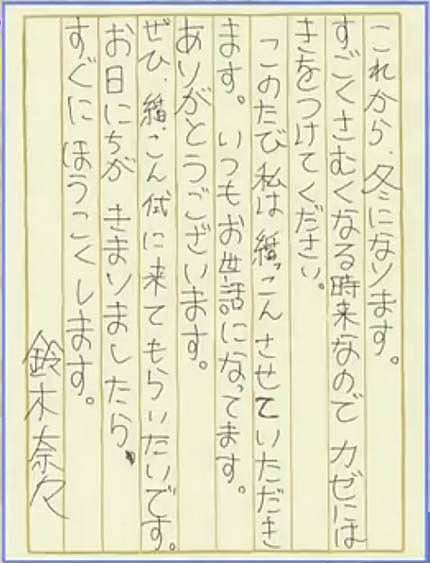 これから、冬になります。
すごくさむくなる時来なので カゼには
きをつけてください。
このたび私は結こんさせていただき
ます。いつもお世話になってます。
ありがとうございます。
ぜひ、結こん式に来てもらいたいです。
お日にちが きまりましたら、
すぐに ほうこくします。
鈴木奈々